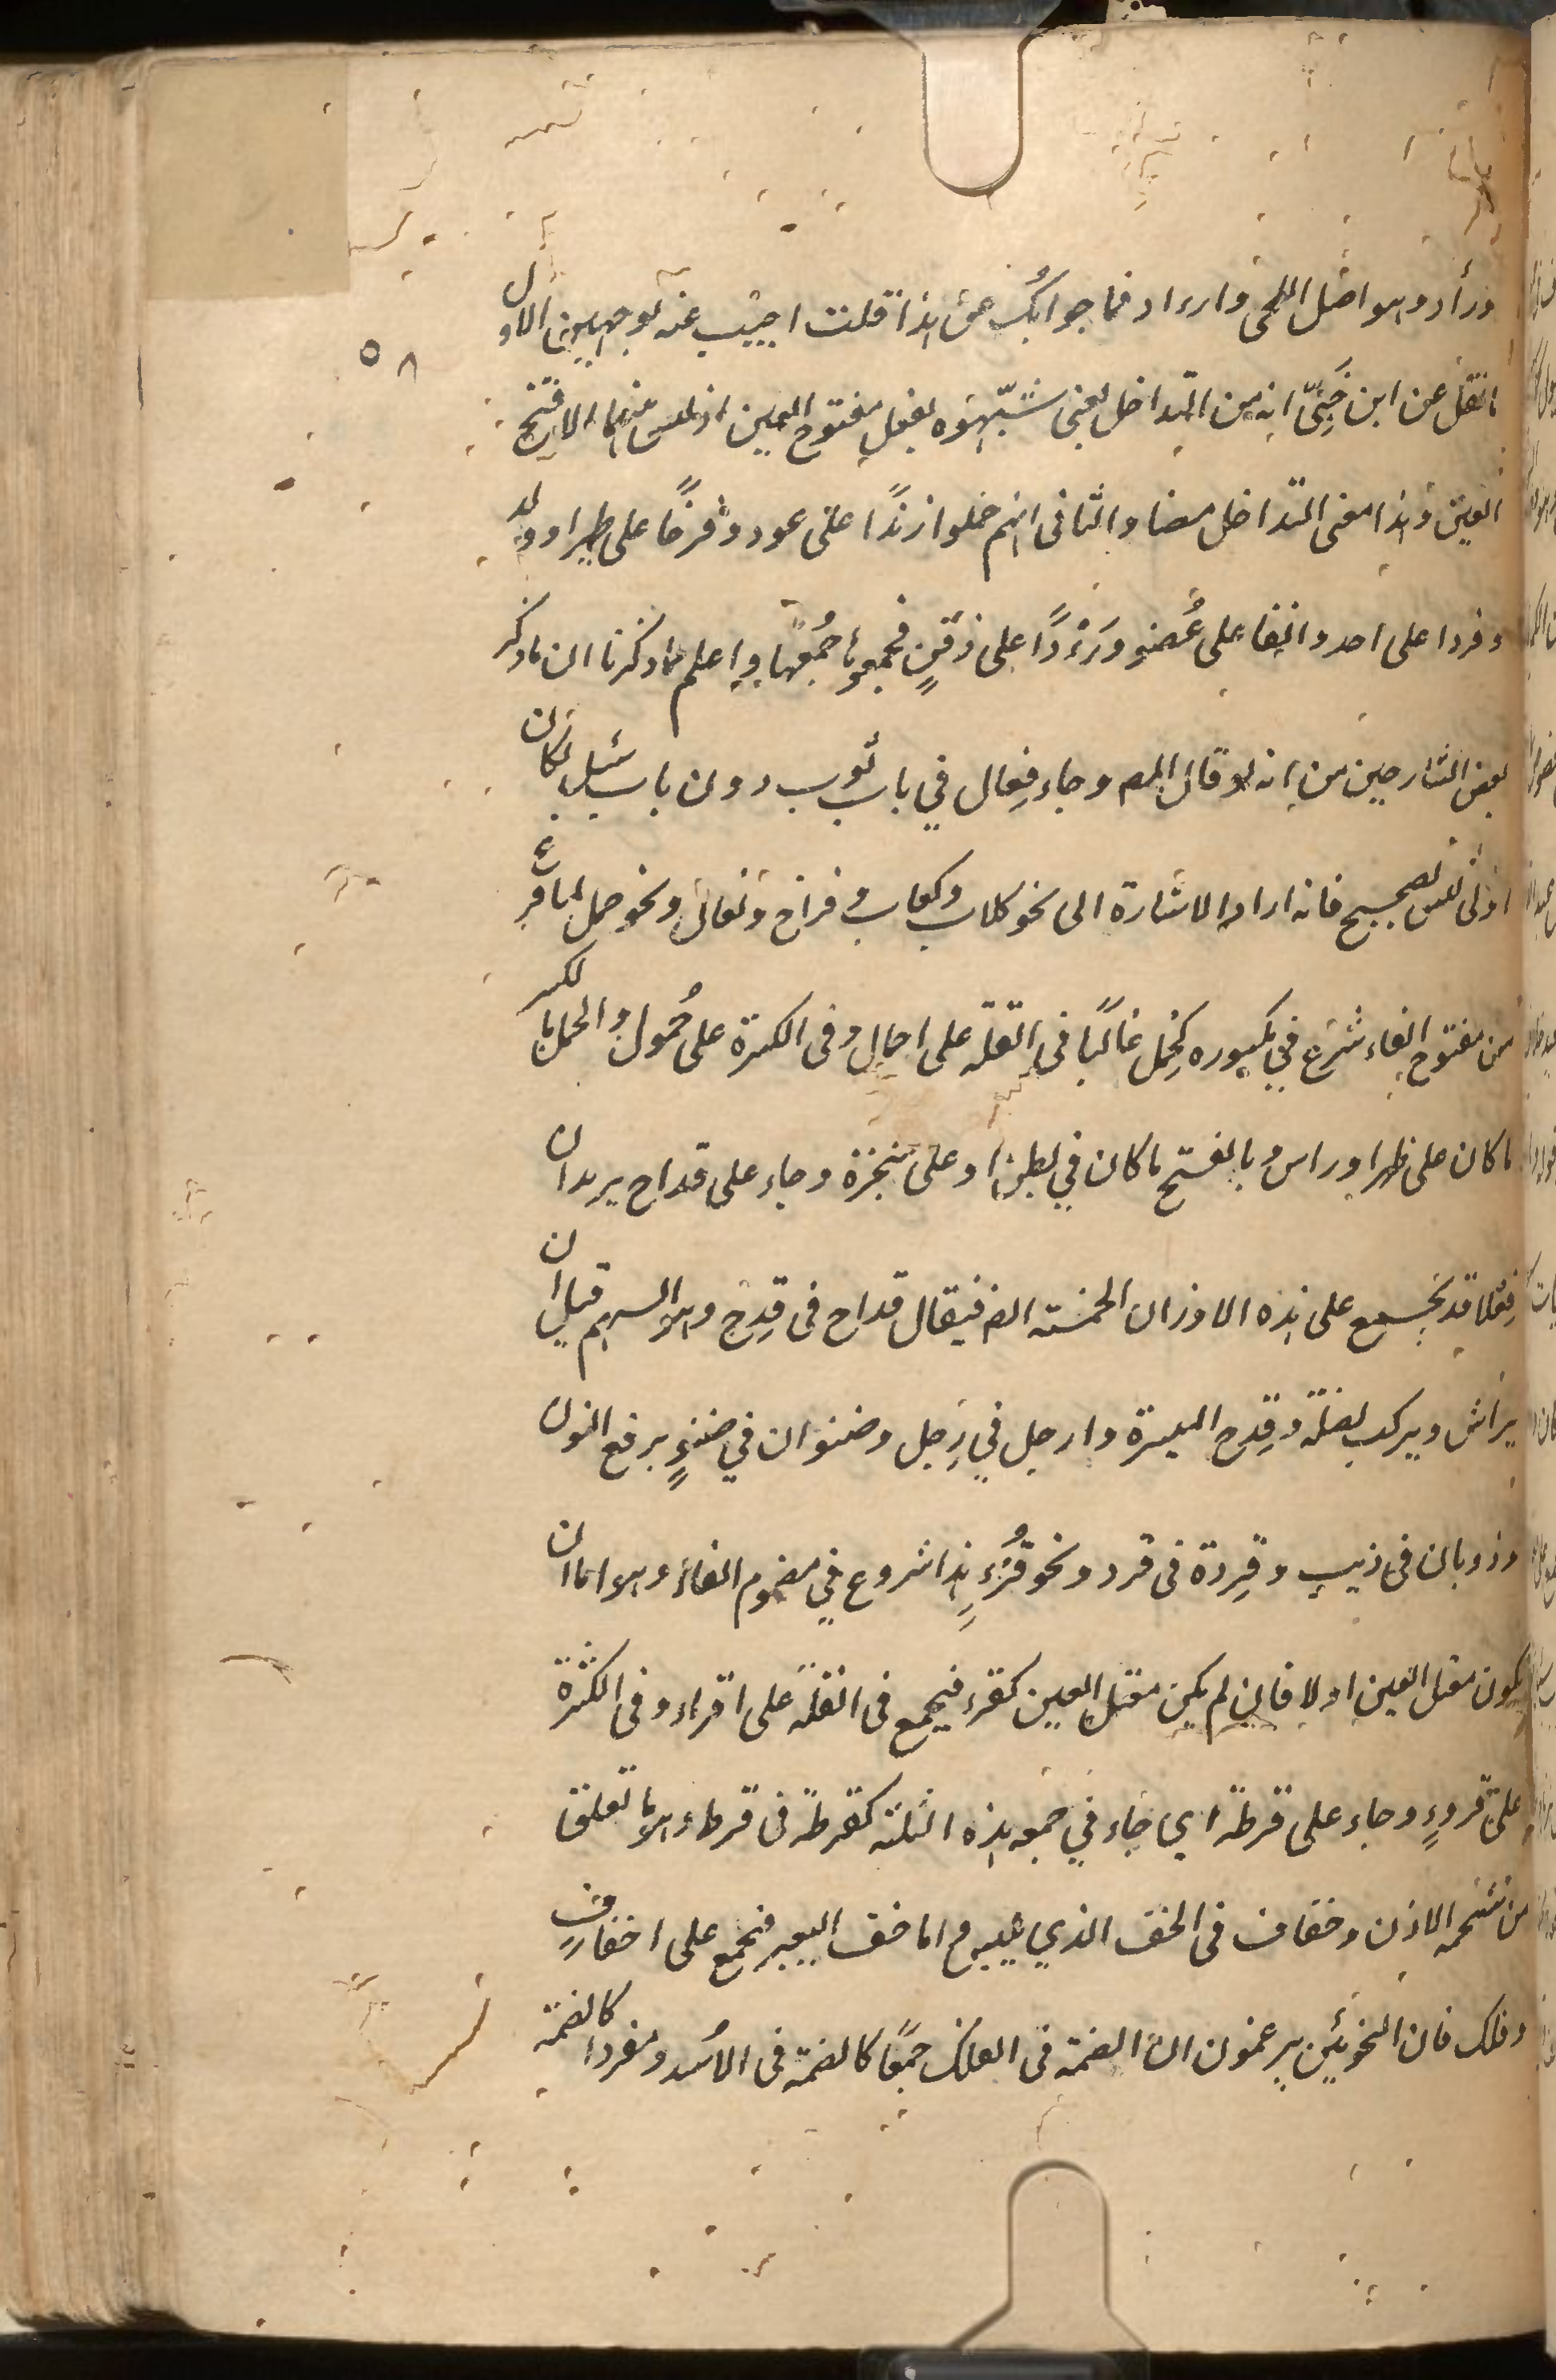 ورأد وهو اصل اللحى وارءاد فما جوابك عن هذا قلت اجيب عنه بوجهين الاول
ما نقل عن ابن جنىّ انه من التداخل يعنى شبّهوه بفعل مفتوح العين اذ ليس منهما الا فتح
العين وهذا معنى التداخل هنا والثانى انهم حملوا زندًا على عود وفرخًا على طير او ولد
وفردا على احد وانفا على عُضوٍ ورَءْدًا على ذقنٍ فجمعوها جُمعها واعلم مما ذكرنا ان ما ذكر
بعض الشارحين من انه لو قال المص وجاء فِعال في باب ثوب دون باب سَيل لكان
اولى ليس بصحيح فانه اراد الاشارة الى نحو كلاب وكعاب وفراخ ونعال ونحو حمل لما فرغ
من مفتوح الفاء شرع في مكسوره كحِمل غالبًا فى القلة على احمال وفى الكثرة على حُمول والحمل بالكسر
ما كان على ظهر او راس وبالفتح ما كان في بطن او على شجرة وجاء على قداح يريد ان
فِعلا قد يجمع على هذه الاوزان الخمسة ايضا فيقال قداح فى قِدح وهو السهم قبل ان
يراش ويركب نصله وقِدح الميسرة وارجل في رِجل وصنوان في صنوٍ برفع النون
وذوبان فى ذيب وقِردة فى قرد ونحو قُرءٍ هذا شروع في مضموم الفاء وهو اما ان
يكون معتل العين او لا فان لم يكن معتل العين كقرء فيجمع فى القلة على اقراء وفى الكثرة
على قروءٍ وجاء على قرطة اي جاء في جمعه هذه الثلثة كقرطة فى قرط وهو ما تعلق
من شحمه الاذن وخفاف فى الخف الذي يلبس واما خف البعير فيجمع على اخفاف
وفلك فان النحويّين يزعمون ان الضمة فى الفلك جمعًا كالضمة فى الاُسد ومفردا كالضمة
٥٨